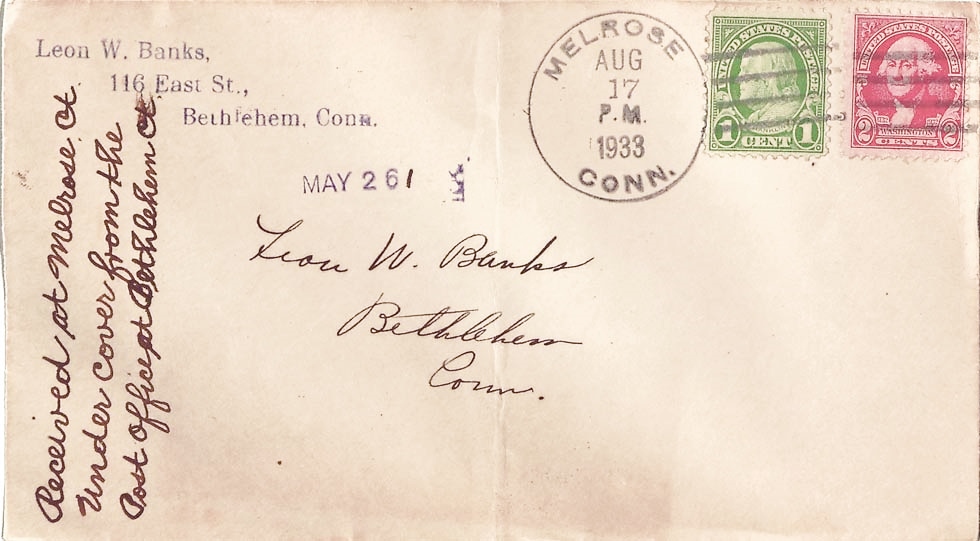 Leon W. Banks,
116 East St.,
Bethlehem, Conn.
MAY 261
MELROSE
AUG
17
P.M.
1933
CONN.
UNITED STATES POSTAGE
1 CENT 1
UNITED STATES POSTAGE
WASHINGTON
2 CENTS 2
Leon W. Banks
Bethlehem
Conn.
Received at Melrose, Ct.
Under cover from the
Post office at Bethlehem Ct